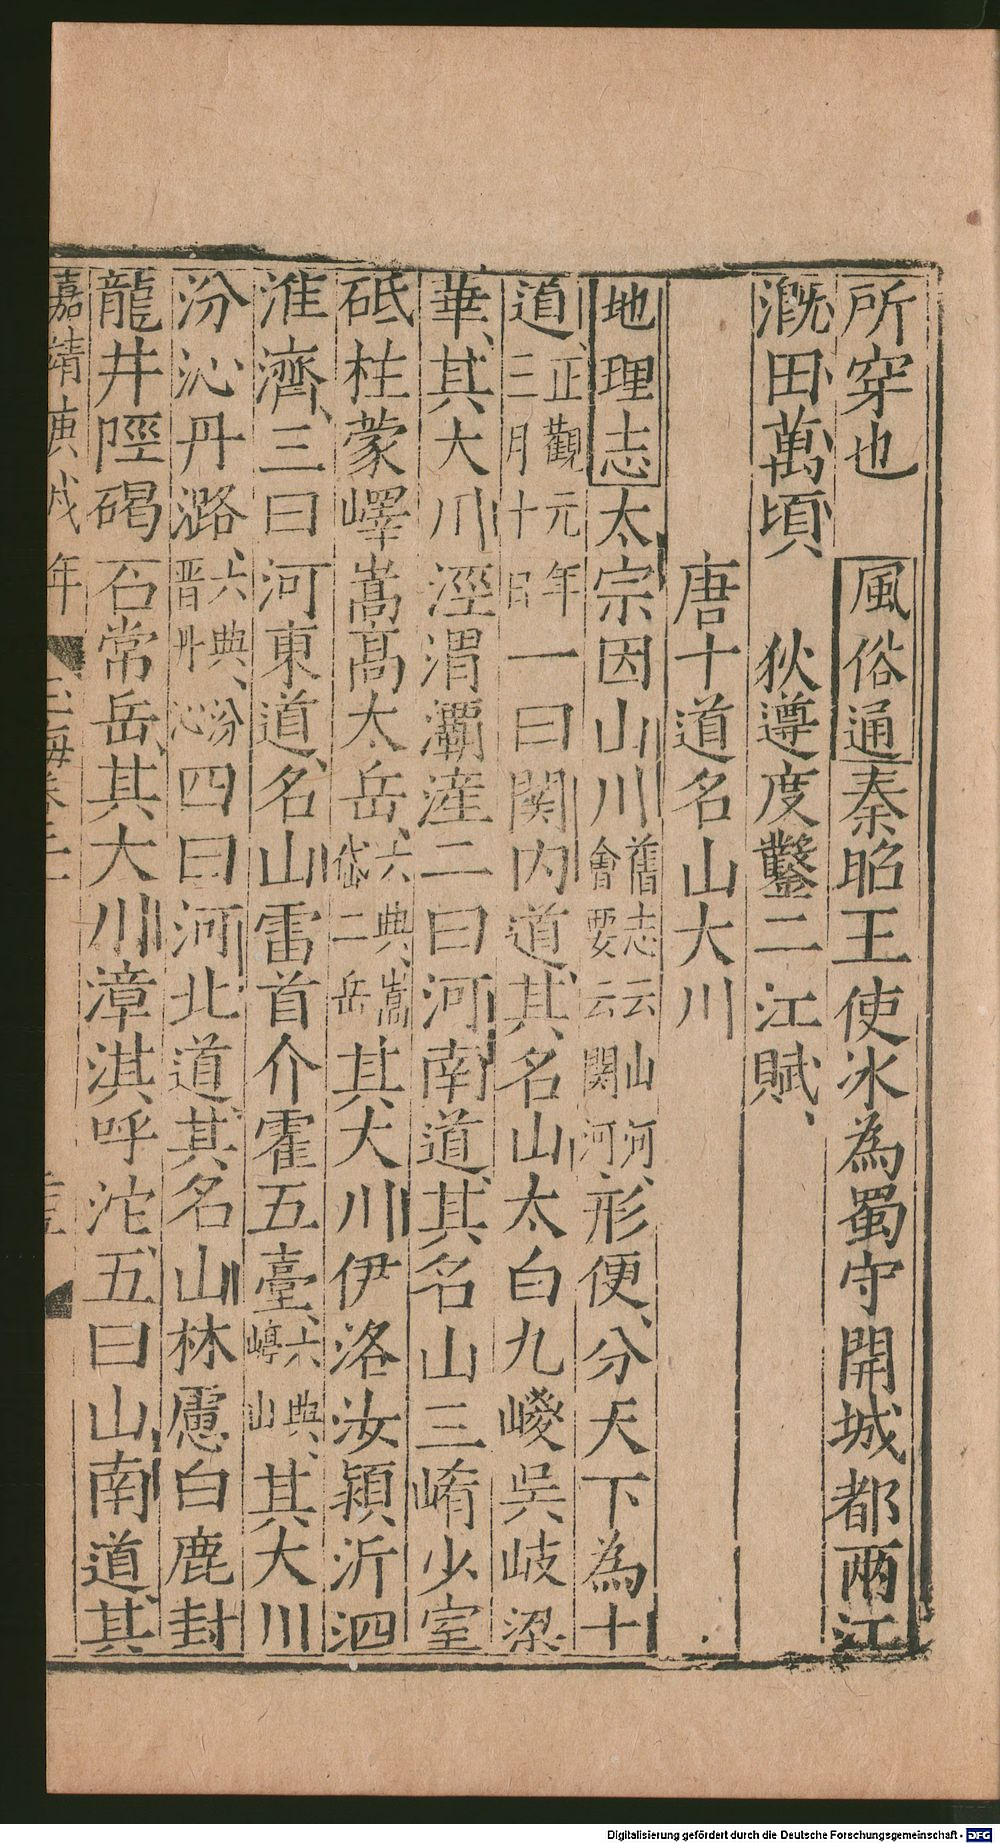 所穿也　風俗通秦昭王使冰為蜀守開城都兩江
溉田萬頃　狄遵度鑿二江賦、
唐十道名山大川
地理志太宗因山川舊志云山河、會要云関河形便、分天下為十
道、正觀元年三月十日一曰関内道、其名山太白九嵕吳岐梁
華、其大川涇渭灞滻二曰河南道、其名山三崤少室
砥柱蒙嶧嵩高太岳、六典、嵩岱二岳其大川伊洛汝潁沂泗
淮濟、三曰河東道、名山雷首介霍五臺、六典、崞山其大川
汾沁丹潞、六典、汾晋丹沁四曰河北道、其名山林慮白鹿封
龍井陘碣石常岳、其大川漳淇呼沱、五曰山南道、其
嘉靖庚戌年
Digitalisierung gefördert durch die Deutsche Forschungsgemeinschaft - DFG